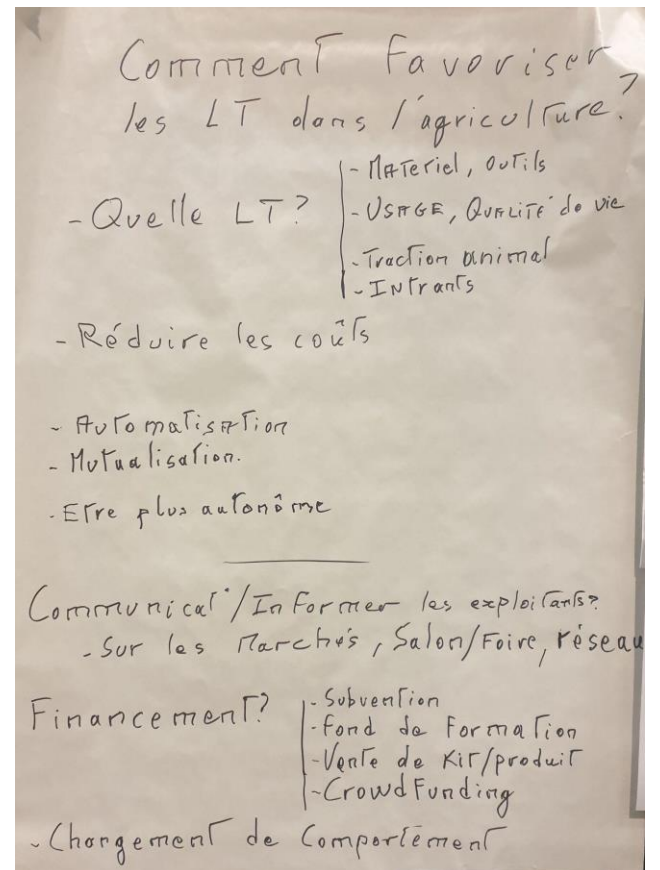 Comment Favoriser
les LT dans l'agriculture?
- Quelle LT?
- Materiel, outils
- Usage, Qualité de vie
- Traction animal
- Intrants
- Réduire les coûts
- Automatisation
- Mutualisation.
- Etre plus autonôme
Communicat°/Informer les exploitants?
- Sur les Marchés, Salon/Foire, réseau
Financement?
- Subvention
- Fond de Formation
- Vente de Kit/produit
- CrowdFunding
- Changement de Comportement